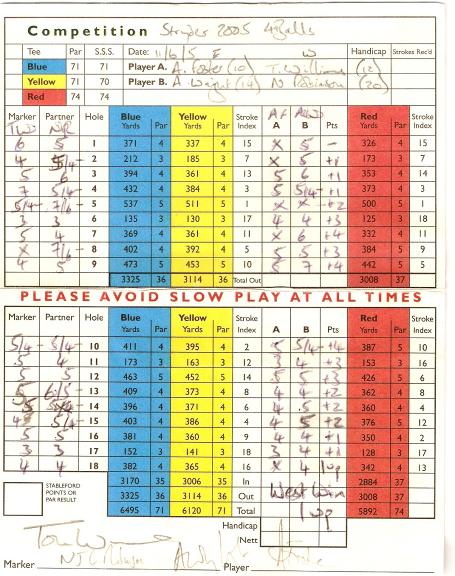 Competition Stryder 2005 4Balls
Tee Par S.S.S. Date: 11/6/5 E W Handicap Strokes Rec'd
Blue 71 71 Player A. A. Foster (10) T. Williams (12)
Yellow 71 70 Player B. A (14) N Robinson (20)
Red 74 74
Marker Partner Hole Blue Yards Par Yellow Yards Par Stroke Index A B Pts Red Yards Par Stroke Index
TW NR AF AW
6 5 1 371 4 337 4 15 x 5 - 326 4 15
4 5/4 2 212 3 185 3 7 x 5 +1 173 3 7
5 6 3 394 4 361 4 13 5 6 +1 353 4 14
7 5/4 4 432 4 384 4 3 5 5/4 +1 373 4 3
5/4 7/6 5 537 5 511 5 1 x x +2 500 5 1
3 3 6 135 3 130 3 17 4 4 +3 125 3 18
5 4 7 369 4 361 4 11 x 6 +4 332 4 11
x 7/6 8 402 4 392 4 5 5 5 +3 384 5 9
4 5 9 473 5 453 5 10 5 7 +4 442 5 5
3325 36 3114 36 Total Out 3008 37
PLEASE AVOID SLOW PLAY AT ALL TIMES
Marker Partner Hole Blue Yards Par Yellow Yards Par Stroke Index A B Pts Red Yards Par Stroke Index
5/4 5/4 10 411 4 395 4 2 5 5/4 +4 387 5 10
5 4 11 173 3 163 3 12 3 4 +3 153 3 16
5 5 12 463 5 452 5 14 5 5 +3 426 5 6
5 6/5 13 409 4 373 4 8 4 4 +2 362 4 8
5 14 396 4 371 4 6 4 5 +2 360 4 4
5/4 15 403 4 386 4 4 4 5 +2 376 5 12
5 5 16 381 4 360 4 9 4 4 +1 350 4 2
3 4 17 152 3 141 3 18 3 4 +1 128 3 17
4 4 18 382 4 365 4 16 x 4 1up 342 4 13
STABLEFORD POINTS OR PAR RESULT 3170 35 3006 35 In 2884 37
3325 36 3114 36 Out West Win 3008 37
6495 71 6120 71 Total 1up 5892 74
Handicap
Nett
Marker Player